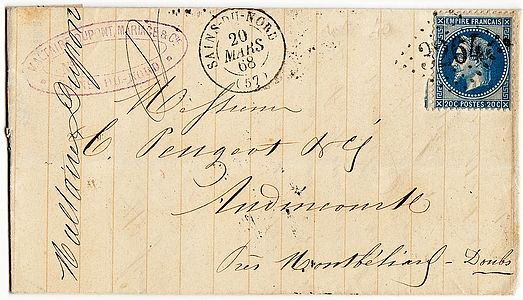 DUPONT, MARIAGE & C.
SAINS-DU-NORD
20
MARS
68
(57)
EMPIRE FRANÇAIS
20C POSTES 20C
Messieurs
C. Peugeot & Cie
Audincourt
Près Montbéliard - Doubs
Dupont